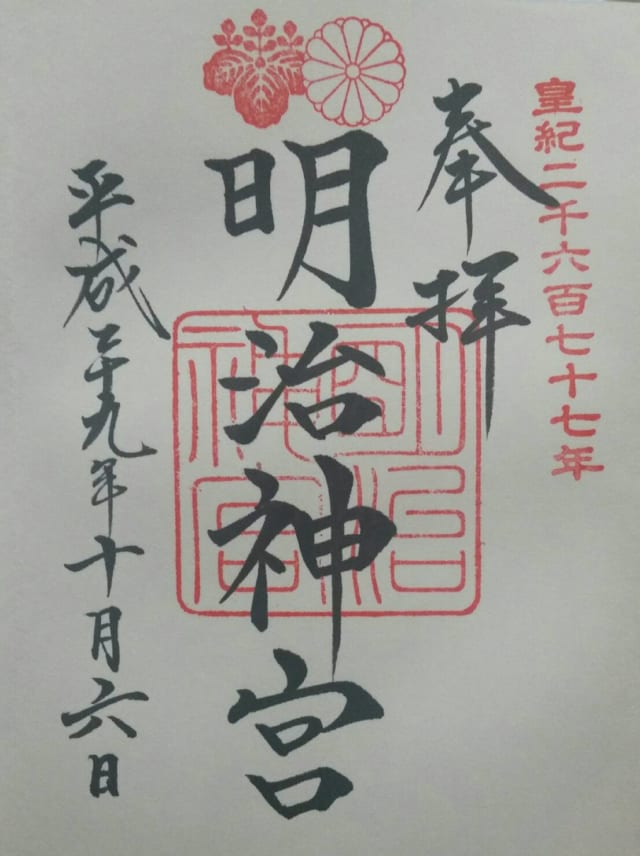 皇紀二千六百七十七年
奉拝
明治神宮
明治神宮
平成二十九年十月六日